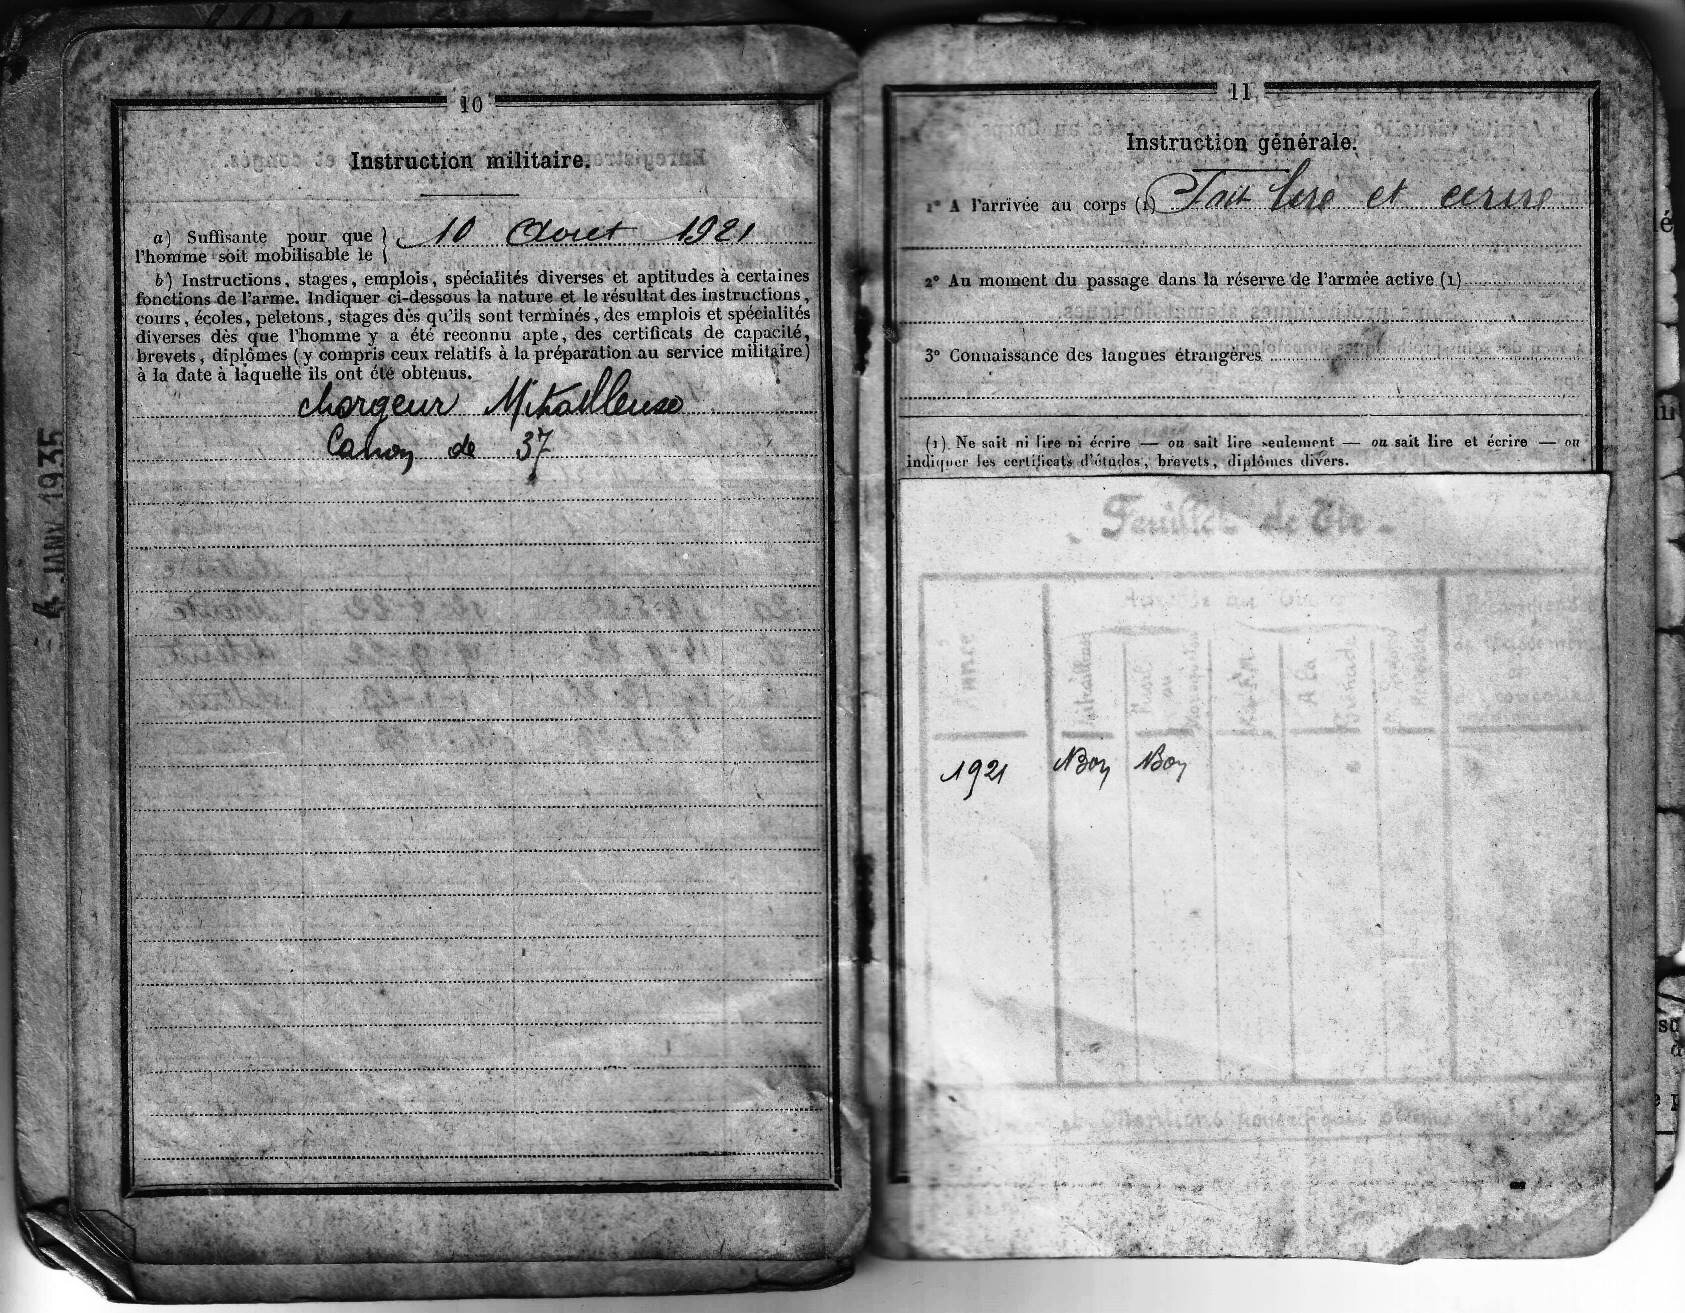 10
Instruction militaire.
a) Suffisante pour que
l'homme soit mobilisable le
10 Aout 1921
b) Instructions, stages, emplois, spécialités diverses et aptitudes à certaines
fonctions de l'arme. Indiquer ci-dessous la nature et le résultat des instructions,
cours, écoles, pelotons, stages dès qu'ils sont terminés, des emplois et spécialités
diverses dès que l'homme y a été reconnu apte, des certificats de capacité,
brevets, diplômes (y compris ceux relatifs à la préparation au service militaire)
à la date à laquelle ils ont été obtenus.
chargeur Mitrailleuse
Canon de 37
JANV 1935
11
Instruction générale.
1° A l'arrivée au corps (1) Sait lire et ecrire
2° Au moment du passage dans la réserve de l'armée active (1)
3° Connaissance des langues étrangères
(1). Ne sait ni lire ni écrire — ou sait lire seulement — ou sait lire et écrire — ou
indiquer les certificats d'études, brevets, diplômes divers.
- Feuillet de Tir -
Année
1921 Bon Bon